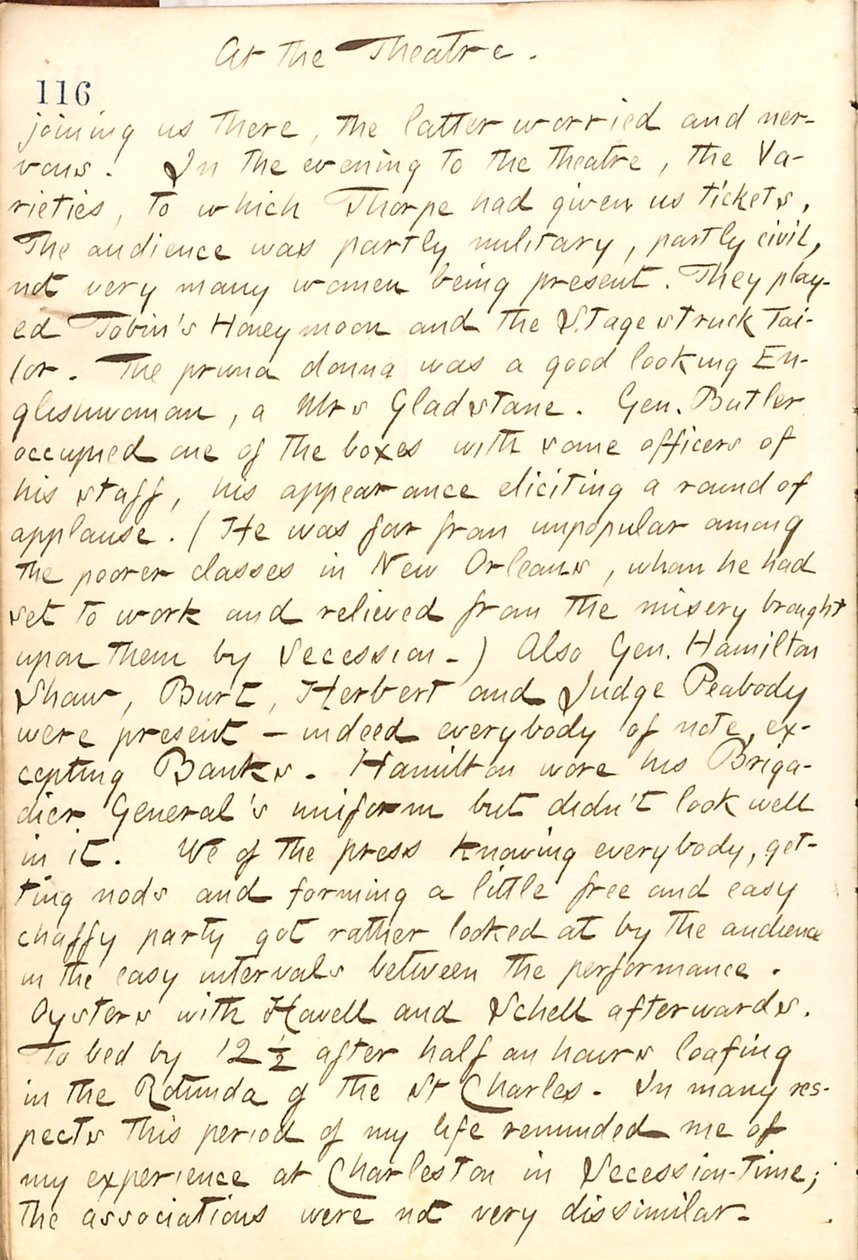 At the Theatre.
116
joining us there, the latter worried and ner-
vous. In the evening to the theatre, the Va-
rieties, to which Thorpe had given us tickets.
The audience was partly military, partly civil,
not very many women being present. They play-
ed Tobin's Honeymoon and the Stage struck Tai-
lor. The prima donna was a good looking En-
glishwoman, a Mrs Gladstane. Gen. Butler
occupied one of the boxes with some officers of
his staff, his appearance eliciting a round of
applause. (He was far from unpopular among
the poorer classes in New Orleans, whom he had
set to work and relieved from the misery brought
upon them by Secession.) Also Gen. Hamilton
Shaw, Burt, Herbert and Judge Peabody
were present - indeed everybody of note, ex-
cepting Banks. Hamilton wore his Briga-
dier General's uniform but didn't look well
in it. We of the press knowing everybody, get-
ting nods and forming a little free and easy
chaffy party got rather looked at by the audience
in the easy intervals between the performance.
Oysters with Howell and Schell afterwards.
To bed by 12 ½ after half an hours loafing
in the Rotunda of the St Charles. In many res-
pects this period of my life reminded me of
my experience at Charleston in Secession-time;
the associations were not very dissimilar.